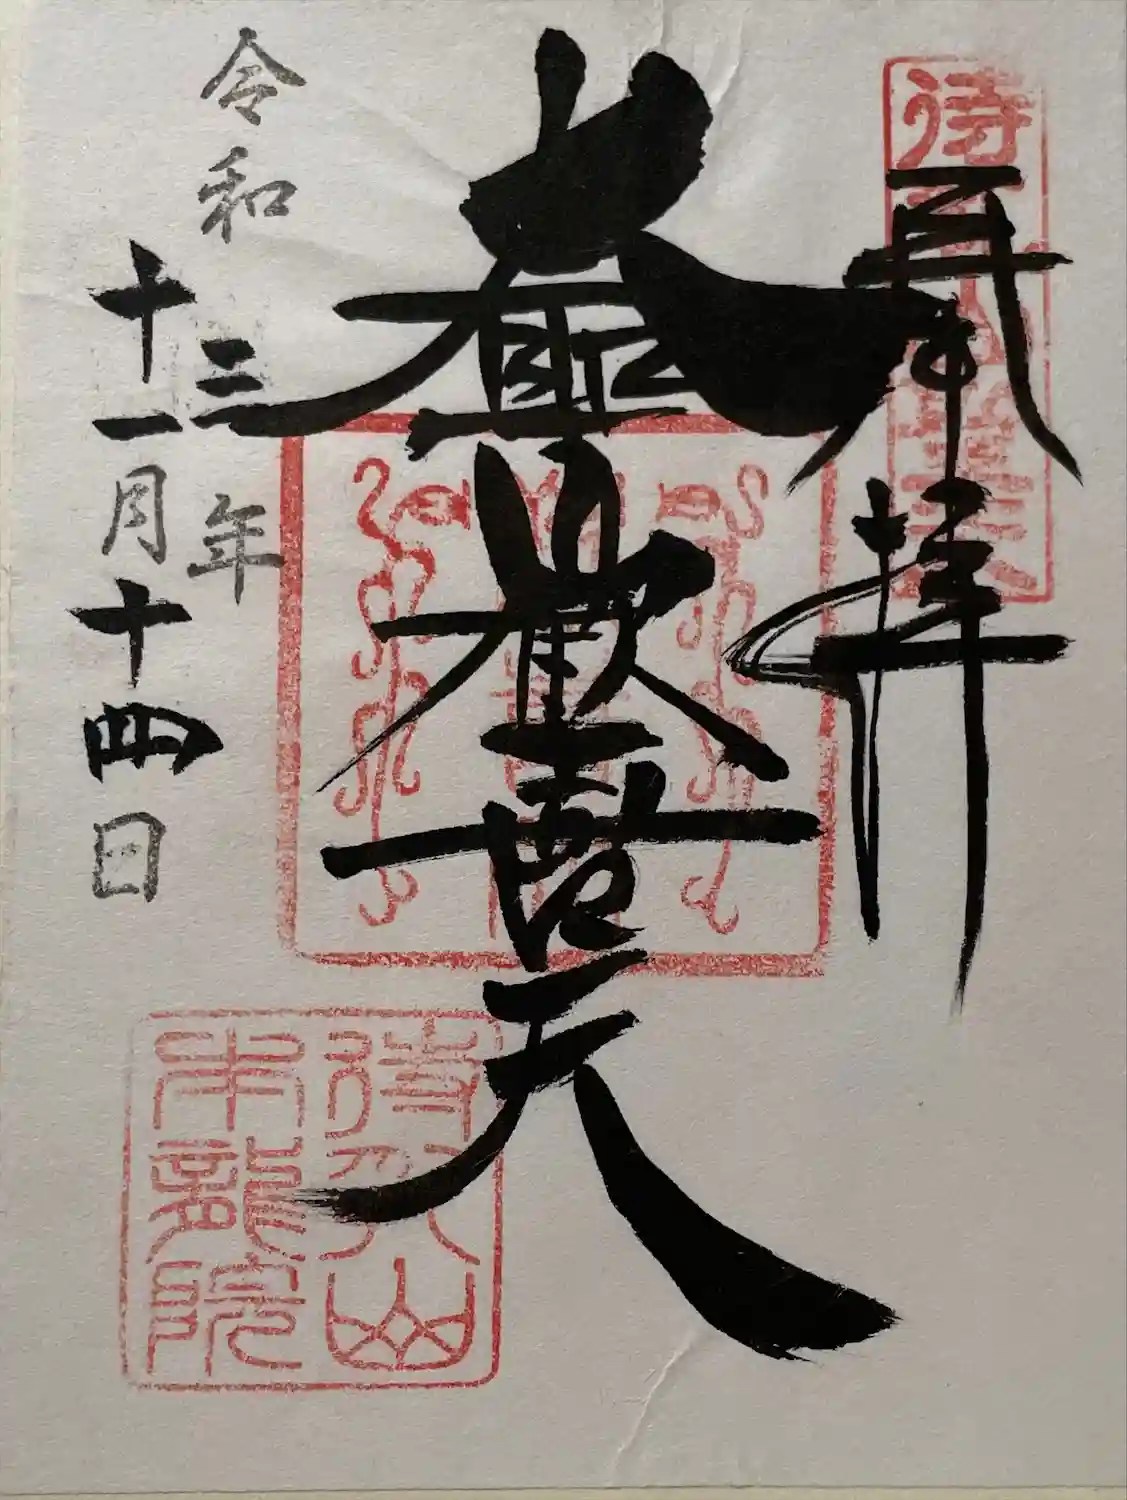 奉拝
大聖歓喜天
令和三年
十一月十四日
待乳山聖天
待乳山
本龍院